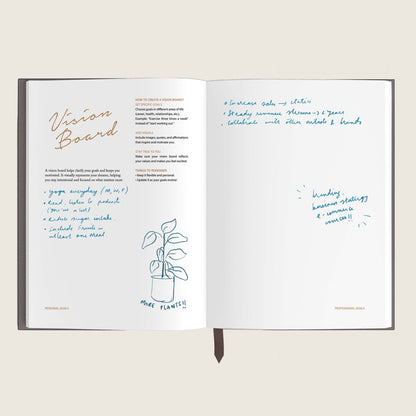 Vision
Board
A vision board helps clarify your goals and keeps you
motivated. It visually represents your desires, helping
you stay intentional and focused on what matters most.
• Yoga everyday (M, W, F)
• Read, listen to podcast
• Reduce sugar intake.
• include 1 veggie in
at least one meal.
HOW TO CREATE A VISION BOARD?
SET SPECIFIC GOALS
Choose goals in different areas of life
(career, health, relationships, etc.).
Example: "Exercise three times a week"
instead of "start working out"
ADD VISUALS
Include images, quotes, and affirmations
that inspire and motivate you.
STAY TRUE TO YOU
Make sure your vision board reflects
your values and makes you feel excited.
THINGS TO REMEMBER
• Keep it flexible and personal.
• Update it as your goals evolve!
MORE PLANTS!!
PERSONAL GOALS
• Increase sales →
• Steady revenue streams → 2 years
• Collaborate with other artists & brands
branding,
business strategy
e-commerce
courses!!
PROFESSIONAL GOALS